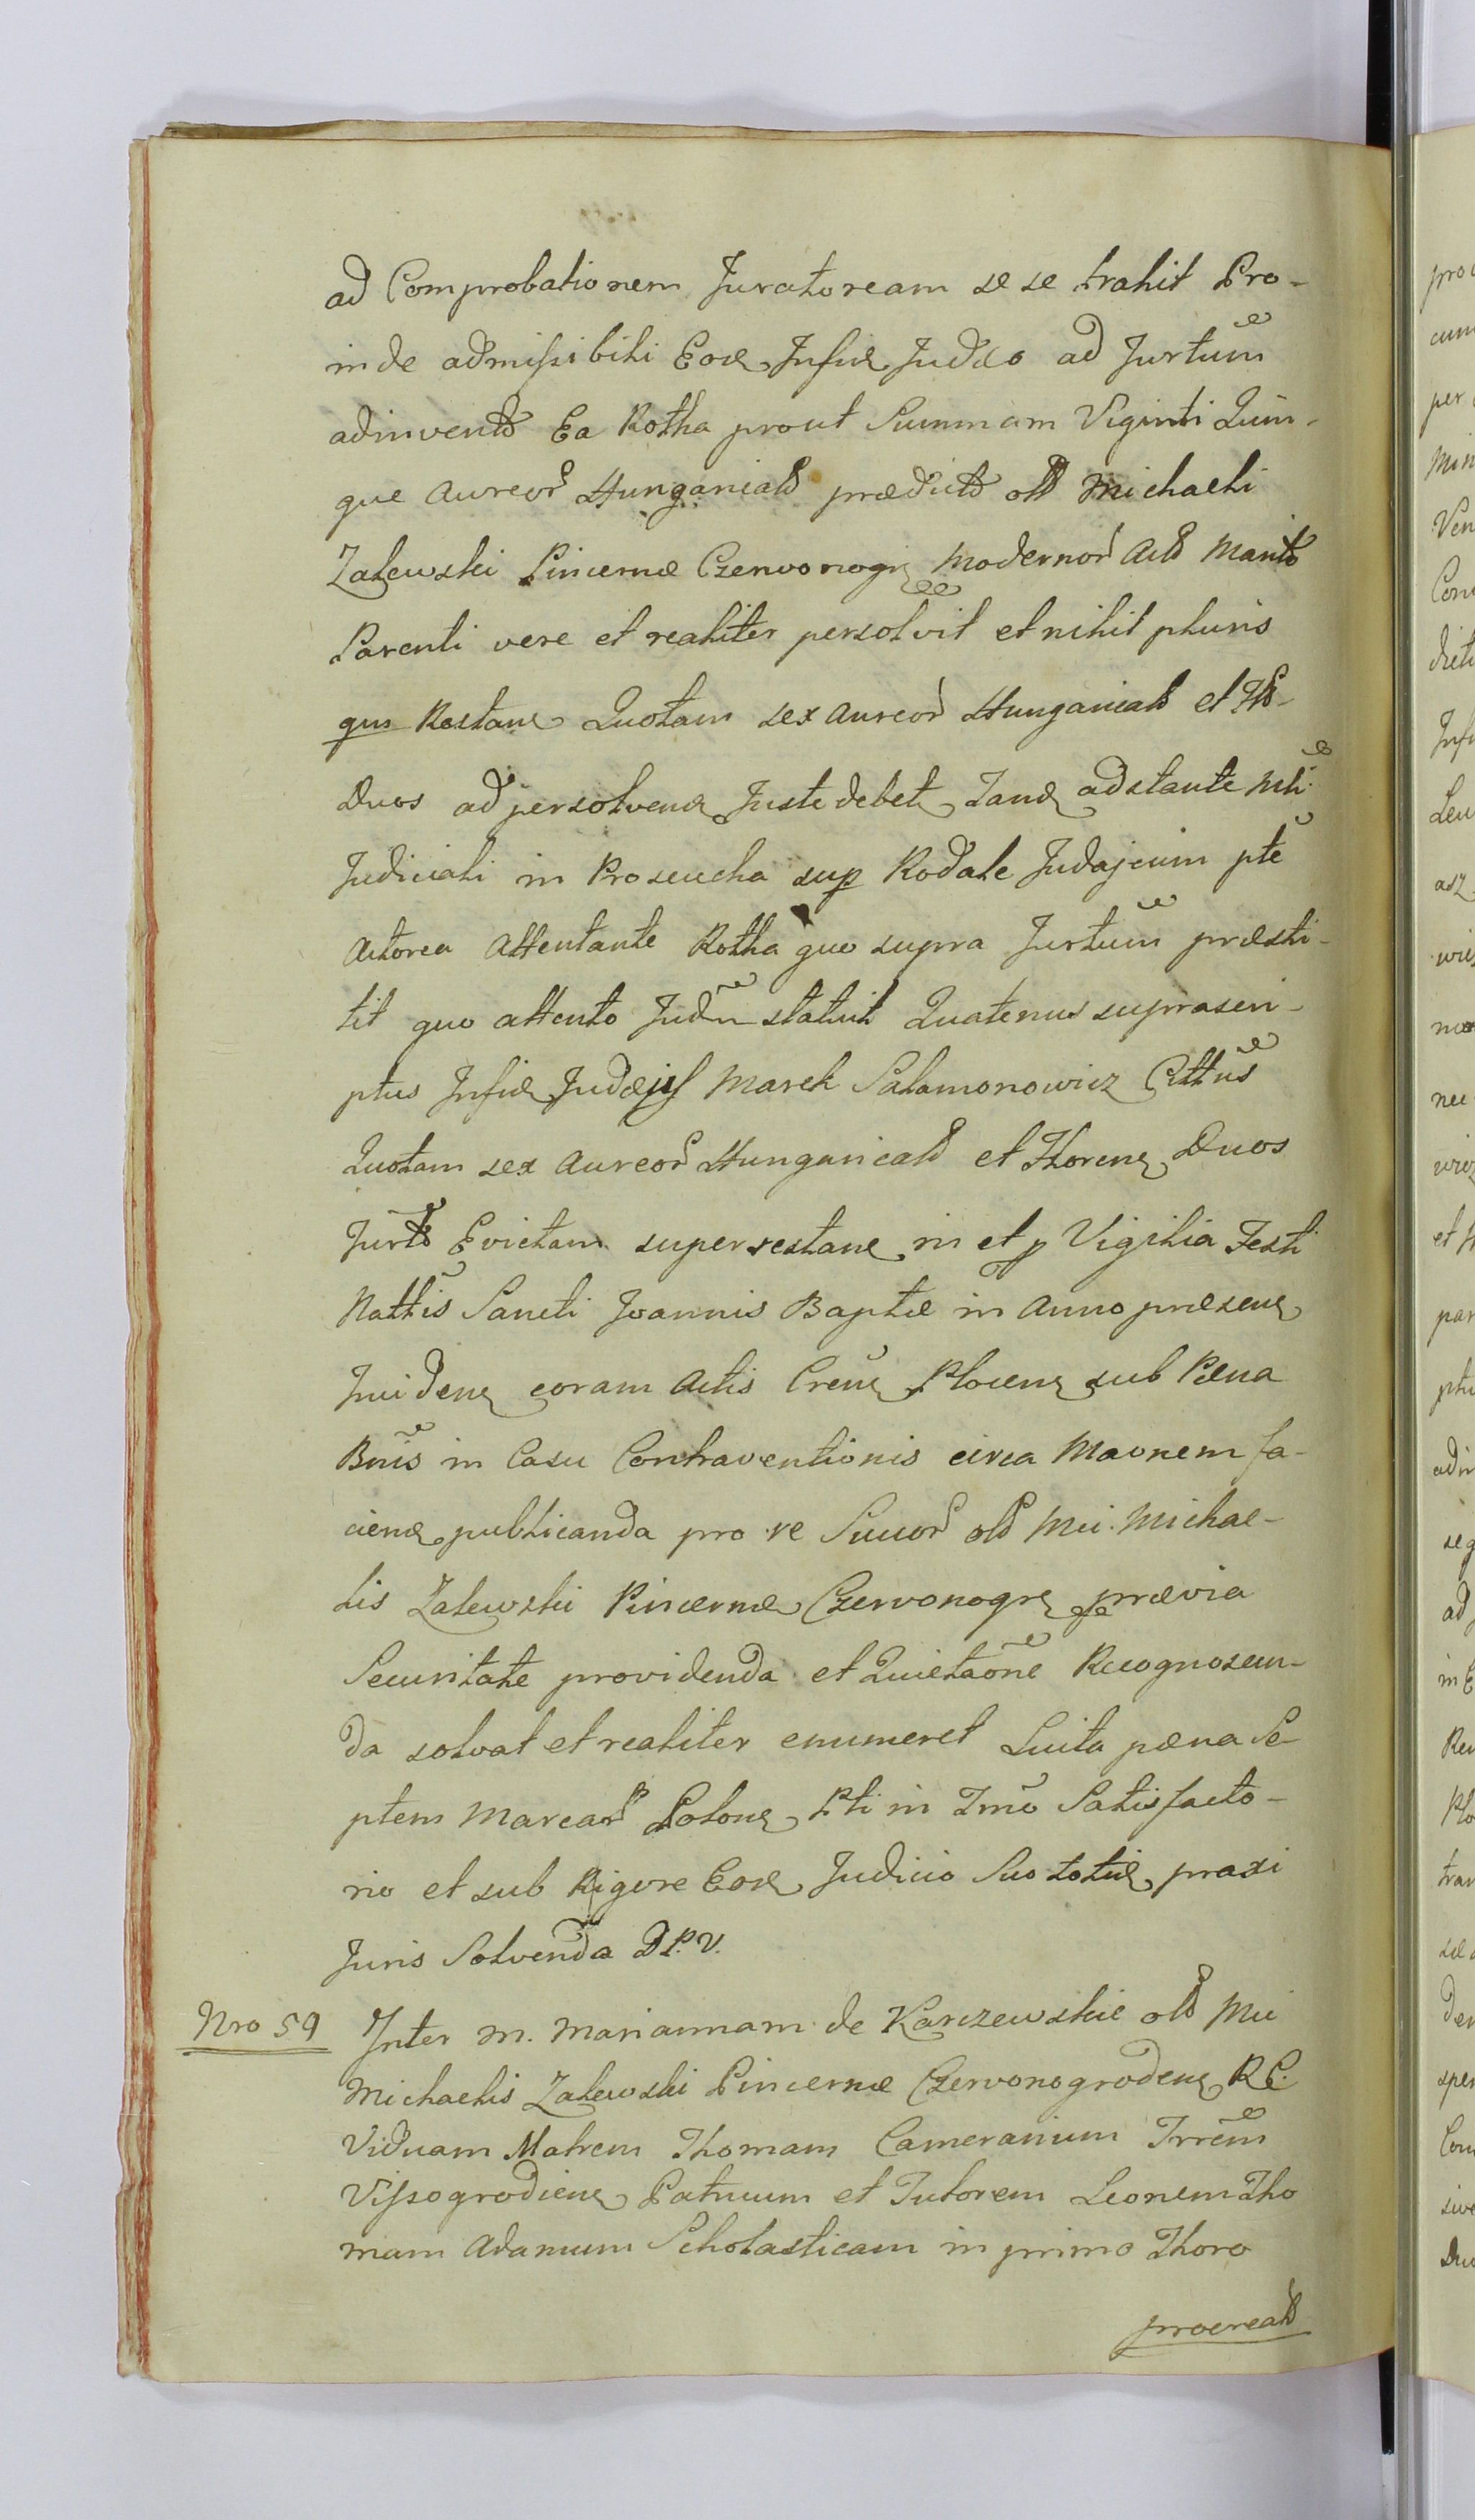 ad Comprobationem Juratoream se se trahit Pro-
inde admissibili Eod Infid Judæo ad Jurtum
adinvento Ea Rotha prout Summam Viginti Quin-
que Aureor Hungarical prædicto olb Michaeli
Zalewski Pincernæ Czerwonogr Modernor Act Marito
Parenti vere et realiter persolvit et nihil pluris
qm Restan Quotam sex Aureor Hungarical et Flb
Duos ad persolven Juste debet Tand adstante Mli
Judiciali in Proseucha sup Rodale Judajcum pte
Actorea Attentante Rotha quo supra Jurtum præsti-
tit quo attento Judm statuit Quatenus suprascri-
ptus Infid Judæjus Marek Salamonowicz Cittus
Quotam sex Aureor Hungarical et Floren Duos
Jurto Evictam superrestan in et p Vigilia Festi
Nattis Sancti Joannis Baptæ in Anno præsen
Inciden coram Actis Cren Plocen sub Pæna
Bnis in Casu Contraventionis circa Maonem fa-
cien publicanda pro re Succor olb Mci Michae-
lis Zalewski Pincernæ Czerwonogr prævia
Securitate providenda et Quietaone Recognoscen-
da solvat et realiter enumeret Luita pæna Se-
ptem Marcar Polon Pti in Tmo Satisfacto-
rio et sub Rigore Eod Judicio Suo totid praxi
Juris Solvenda D.P.V.
Nro 59 Inter M. Mariannam de Karczewskie olb Mci
Michaelis Zalewski Pincernæ Czerwonogroden R.C.
Viduam Matrem Thomam Camerarium Trrem
Vissogrodien Patruum et Tutorem Leonem Tho
mam Adamum Scholasticam in primo Thoro
procreat